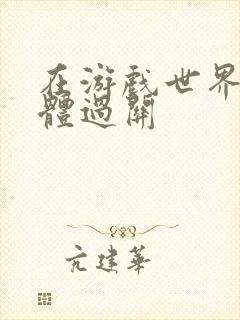 在游戲世界
體過關
亢建華